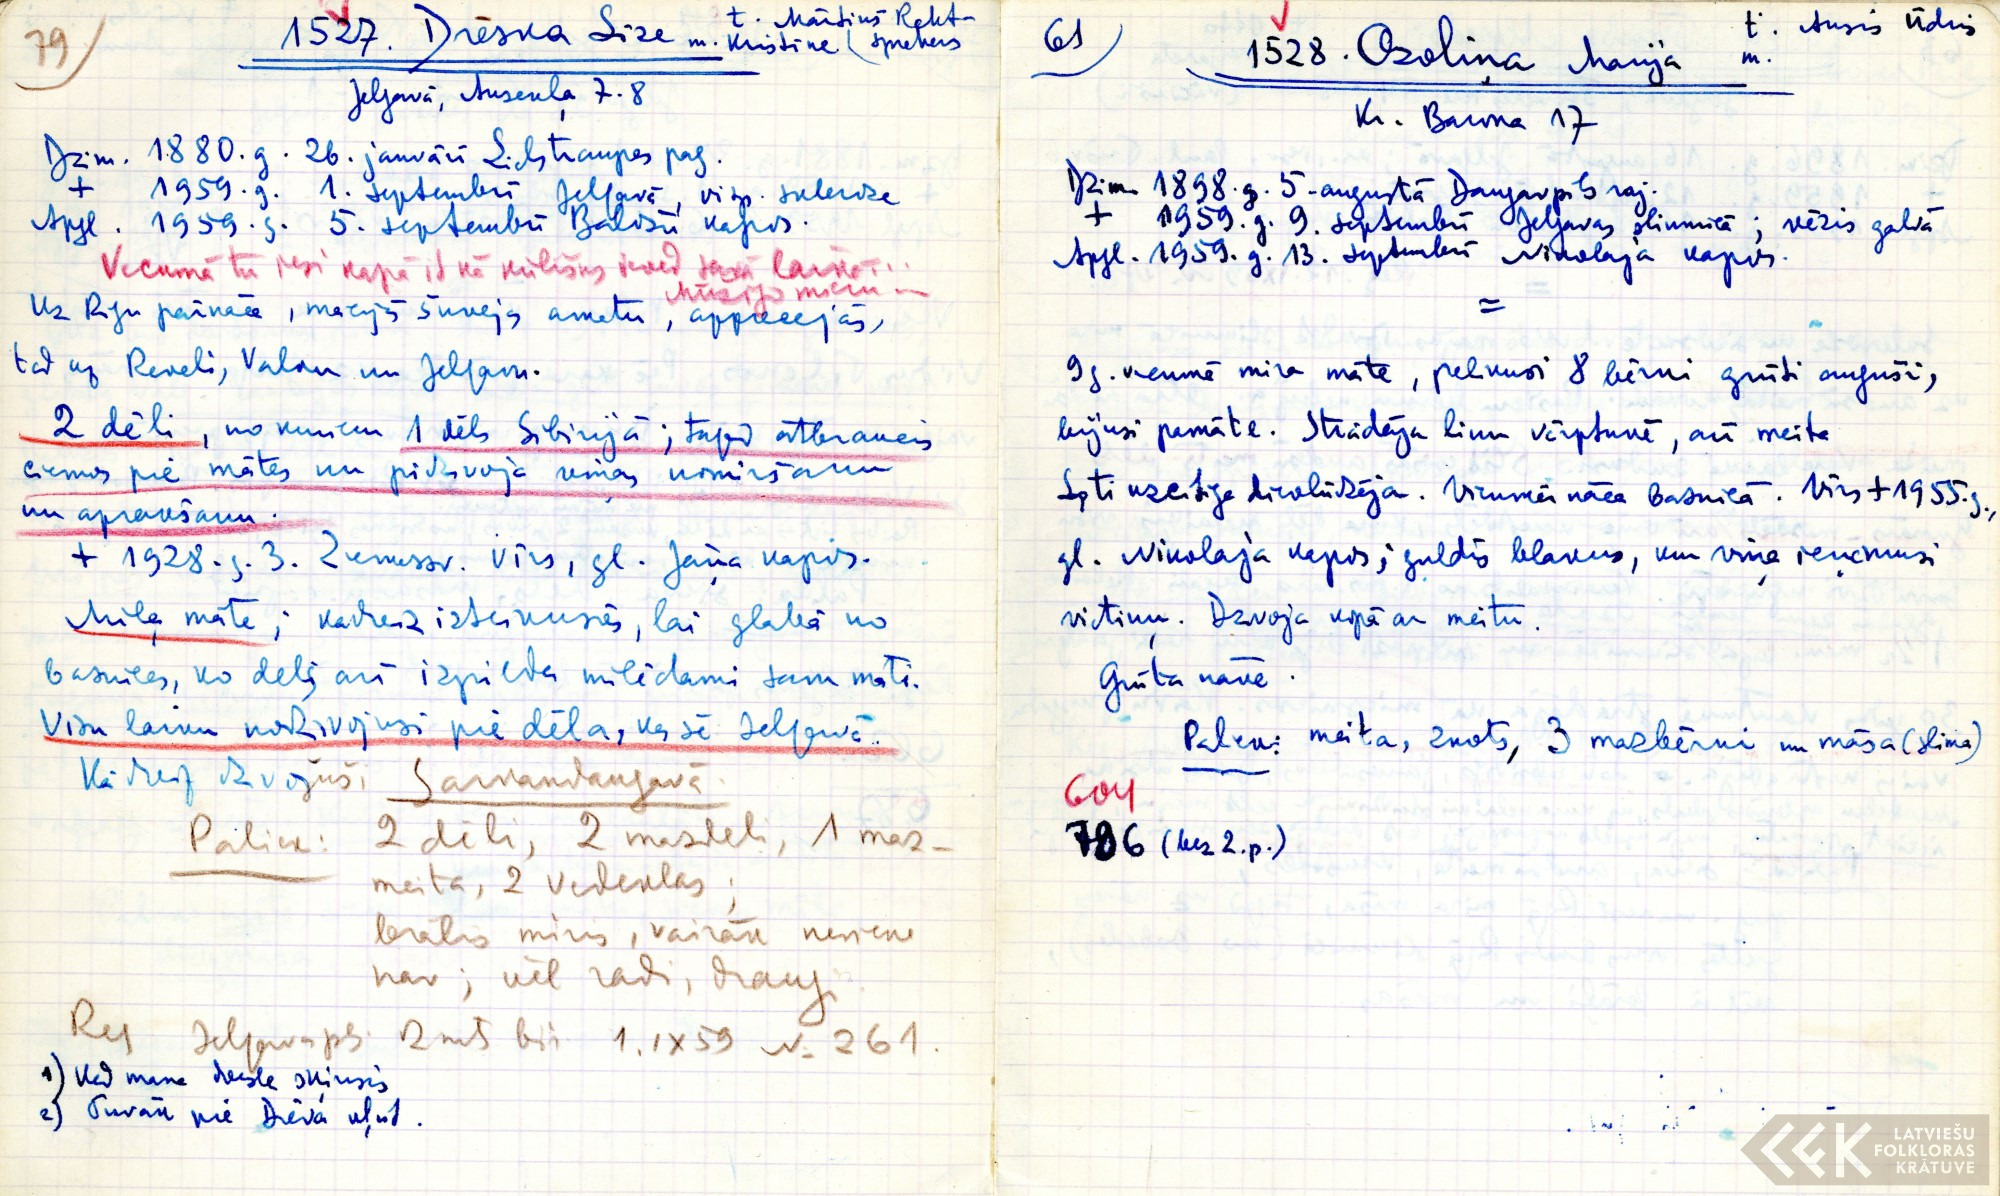 79)
1527. Drēska Līze t. Mārtiņš Rekt-
m. Kristīne (spreķers
Jelgavā, Ausekļa 7-8
Dzim. 1880. g. 26. janvārī Lielstraupes pag.
+ 1959. g. 1. septembrī Jelgavā, visp. skleroze
Apgl. 1959. g. 5. septembrī Baložu kapos.
Vecumā tu iesi kapā it kā kūlīšus ieved savā laikā...
Mūžīgo mieru...
Uz Rīgu pārnāca, mācījās šuvējas amatu, apprecējās,
tad uz Rēveli, Valku un Jelgavu.
2 dēli, no kuriem 1 dēls Sibīrijā; tagad atbraucis
ciemos pie mātes un piedzīvoja viņas nomiršanu
un aprakšanu.
+ 1928. g. 3. Vīrs, gl. Jāņa kapos.
Mīļa māte; kādreiz izteikusēs, lai glabā no
baznīcas, ko dēli arī izpilda mīlēdami savu māti.
Visu laiku nodzīvojusi pie dēla, kas še Jelgavā.
Kādreiz dzvojusi Sarkandaugavā.
Paliek: 2 dēli, 2 mazdēli, 1 maz-
meita, 2 vedeklas;
brālis miris, vairāk neviena
nav; vēl radi, draugi.
Reģ Jelgavas pils. Zmts bir. 1.IX 59 N: 261.
1) Kad mana dvēsle šķirsies
2) Tuvāk pie Dieva kļūt.
61)
1528. Ozoliņa Marija t. Ansis Ūdris
m.
Kr. Barona 17
Dzim. 1898. g. 5. augustā Daugavpils raj.
+ 1959. g. 9. septembrī Jelgavas slimnīcā; vēzis galvā
Apgl. 1959. g. 13. septembrī Nikolaja kapos.
=
9 g. vecumā mira māte, palikuši 8 bērni grūti auguši,
bijusi pamāte. Strādāja linu vērptuvē, arī meita
Ļoti uzcītīga dievlūdzēja. Vienmēr nāca baznīcā. Vīrs + 1955. g.,
gl. Nikolaja kapos; guldīs blakus, kur viņa ieņēmusi
vietiņu. Dzvoja kopā ar meitu.
Grūta nāve.
Paliek: meita, znots, 3 mazbērni un māsa (slima)
604
786 (bez 2. p.)
LATVIEŠU
FOLKLORAS
KRĀTUVE